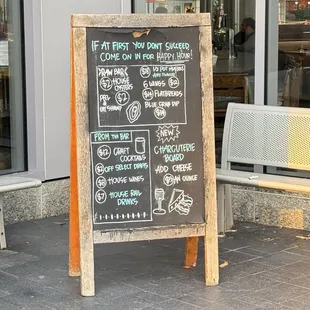 If at First you Don't Succeed,
Come on in for Happy Hour!
Raw Bar
$2 House
Oysters
Peel
6 Wings
$14 Flatbreads
Blue Crab Dip
From the Bar
$12 Craft
Cocktails
Off Select
House Wines
$7 House Rail
Drinks
New
Charcuterie
Board
Add Cheese
an ounce